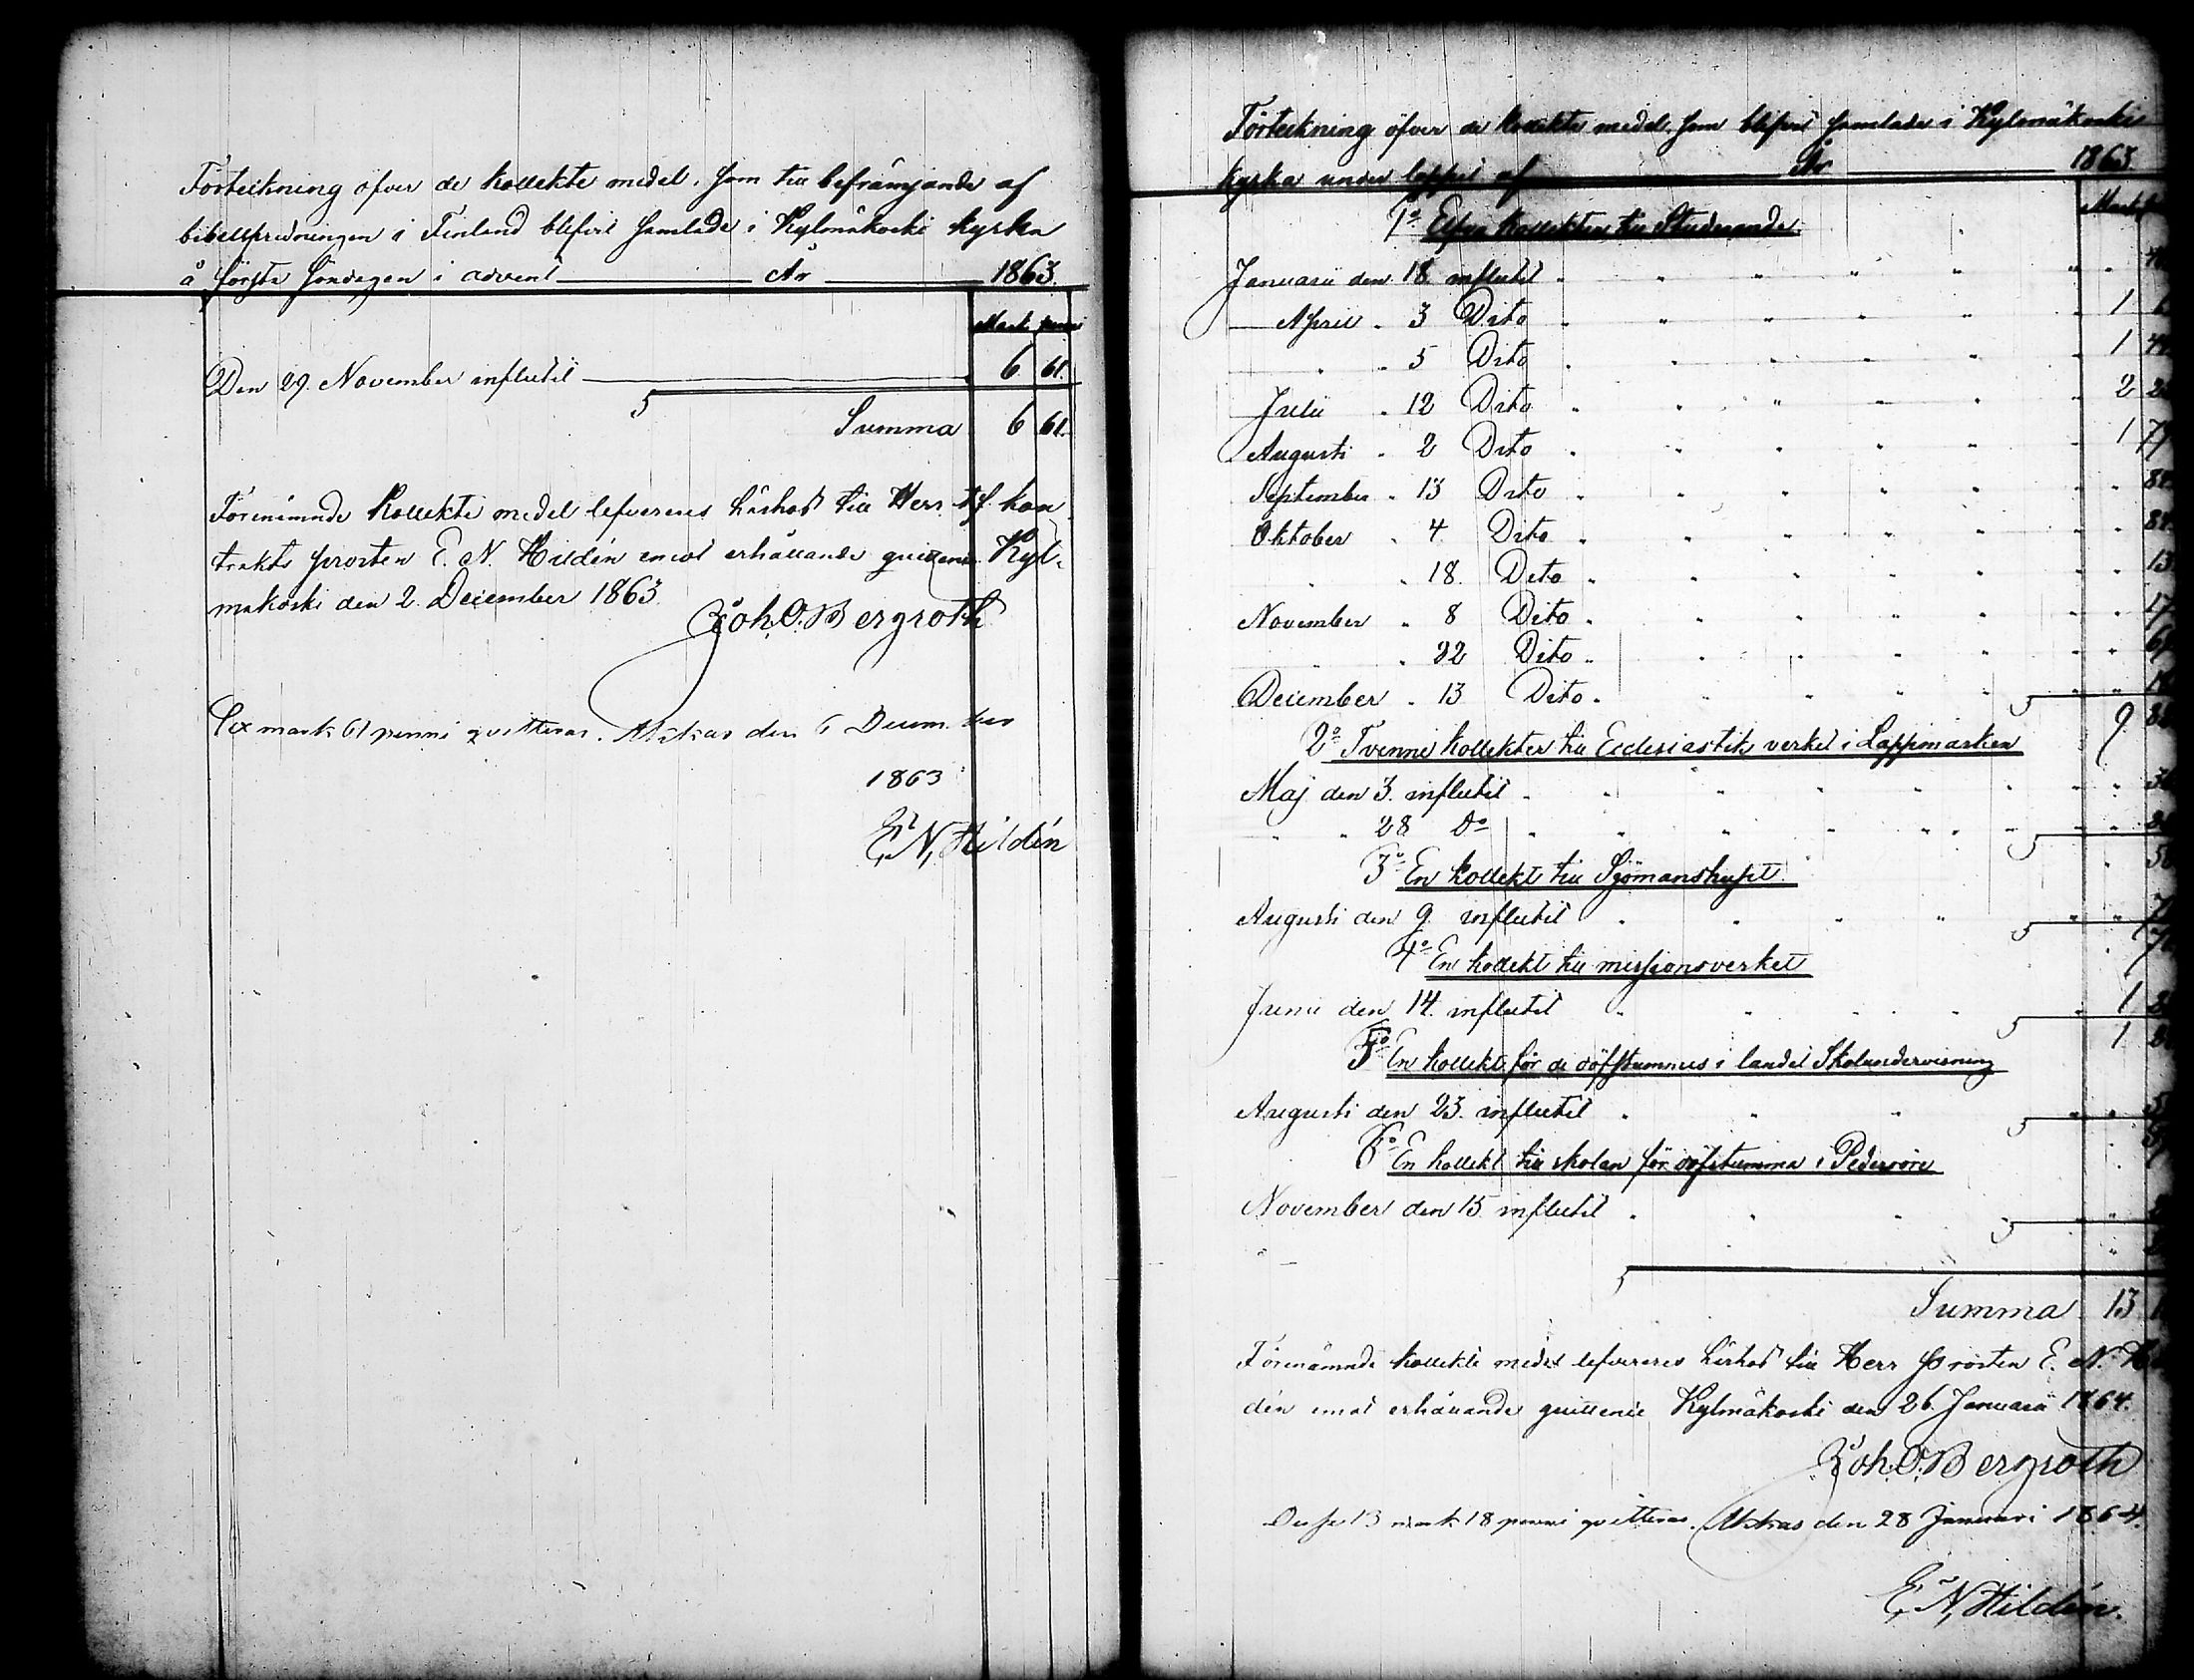 Förteckning öfver de kollekte medel, som till befrämjande af
bibelspridningen i Finland blifvit samlade i Kylmäkoski kyrka
å första söndagen i advent År 1863.
Mark penni
Den 29. November influtit 6 61.
Summa 6 61.
Förenämnde kollekte medel lefvereres härhos till Herr t.f. kon-
trakts prosten E. N. Hildén emot erhållande quittence. Kyl-
mäkoski den 2. December 1863.
Joh. O. Bergroth
Sex mark 61 penni qvitteras. Akkas den 6 Decem. ber
1863
E. N. Hildén
Förteckning öfver de kollekte medel, som blifvit samlade i Kylmäkoski
kyrka under loppet af År 1863.
Mark
1º Elfva kollekter till Studerande.
Januarii den 18. influtit " " " " " "
April " 3 Dito " " " " " 1
" " 5 Dito " " " " " 1
Julii " 12 Dito " " " " " 2
Augusti " 2 Dito " " " " " 1 77
September " 13 Dito " " " " " "
Oktober " 4. Dito " " " " " "
" " 18. Dito " " " " " " 13
November " 8 Dito " " " " " " 17
" " 22 Dito " " " " " "
December " 13 Dito " " " " " "
9
2º Tvenne kollekter till Ecclesiastik verket i Lappmarken
Maj den 3. influtit " " " " " "
" " 28 Dº " " " " " "
3º En kollekt till Sjömanshuset.
Augusti den 9. influtit " " " " "
4º En kollekt till missionsverket
Junii den 14. influtit " " " " 1
1
5º En kollekt för de döfstummes i landet Skolundervisning
Augusti den 23. influtit " " " "
6º En kollekt till skolan för döfstumma i Pedersöre
November den 15. influtit " " " "
Summa 13
Förenämnde kollekte medel lefvereres härhos till Herr Prosten E. N. Hil-
dén emot erhållande quittence Kylmäkoski den 26. Januarii 1864.
Joh. O. Bergroth
Desse 13 mark 18 penni qvitteras. Akkas den 28 Januari 1864.
E. N. Hildén.